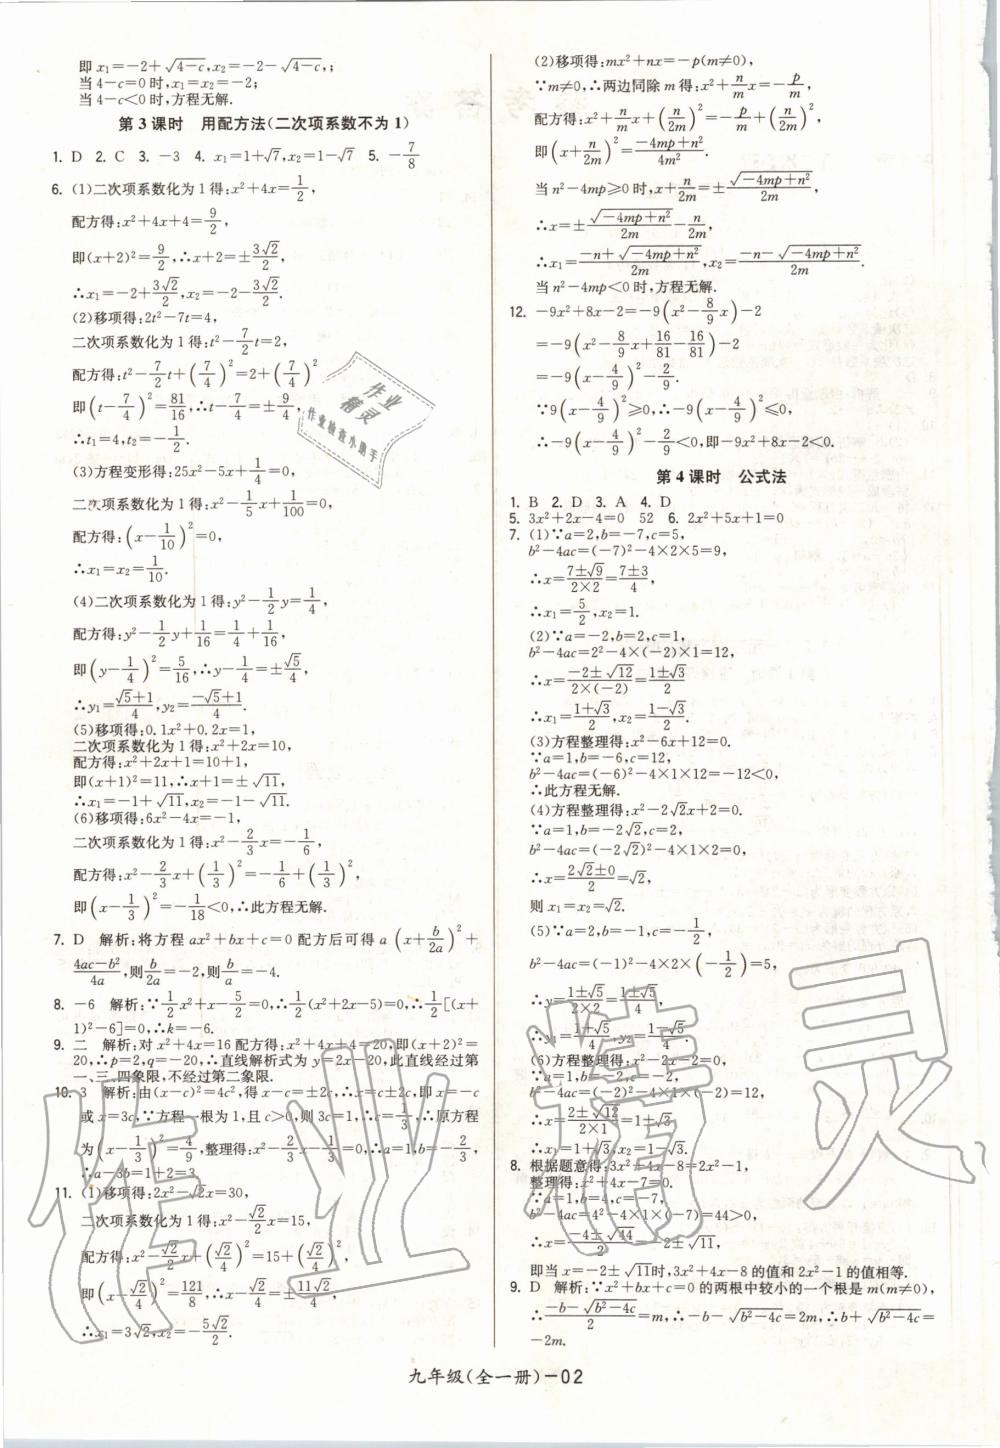 即x₁=-2+√(4-c),x₂=-2-√(4-c),;
当4-c=0时,x₁=x₂=-2;
当4-c<0时,方程无解.
第3课时 用配方法(二次项系数不为1)
1. D 2. C 3. -3 4. x₁=1+√7,x₂=1-√7 5. -7/8
6. (1)二次项系数化为1得:x²+4x=1/2,
配方得:x²+4x+4=9/2,
即(x+2)²=9/2,∴x+2=±3√2/2,
∴x₁=-2+3√2/2,x₂=-2-3√2/2.
(2)移项得:2t²-7t=4,
二次项系数化为1得:t²-7/2t=2,
配方得:t²-7/2t+(7/4)²=2+(7/4)²,
即(t-7/4)²=81/16,∴t-7/4=±9/4,
∴t₁=4,t₂=-1/2.
(3)方程变形得:25x²-5x+1/4=0,
二次项系数化为1得:x²-1/5x+1/100=0,
配方得:(x-1/10)²=0,
∴x₁=x₂=1/10.
(4)二次项系数化为1得:y²-1/2y=1/4,
配方得:y²-1/2y+1/16=1/4+1/16,
即(y-1/4)²=5/16,∴y-1/4=±√5/4,
∴y₁=(√5+1)/4,y₂=(-√5+1)/4.
(5)移项得:0.1x²+0.2x=1,
二次项系数化为1得:x²+2x=10,
配方得:x²+2x+1=10+1,
即(x+1)²=11,∴x+1=±√11,
∴x₁=-1+√11,x₂=-1-√11.
(6)移项得:6x²-4x=-1,
二次项系数化为1得:x²-2/3x=-1/6,
配方得:x²-2/3x+(1/3)²=-1/6+(1/3)²,
即(x-1/3)²=-1/18<0,∴此方程无解.
7. D 解析:将方程ax²+bx+c=0配方后可得a(x+b/2a)²+
(4ac-b²)/4a,则b/2a=-2,则b/a=-4.
8. -6 解析:∵1/2x²+x-5/2=0,∴1/2(x²+2x-5)=0,∴1/2[(x+
1)²-6]=0,∴k=-6.
9. 二 解析:对x²+4x=16配方得:x²+4x+4=20,即(x+2)²=
20,∴p=2,q=-20,∴直线解析式为y=2x-20,此直线经过第
一、三、四象限,不经过第二象限.
10. 3 解析:由(x-c)²=4c²,得x-c=±2c,∴x=c±2c,即x=-c
或x=3c,∵方程一根为1,且c>0,则3c=1,∴c=1/3,∴原方程
为(x-1/3)²=4/9,整理得:x²-2/3x-1/3=0,∴a=1,b=-2/3,
∴a-3b=1+2=3.
11. (1)移项得:2x²-√2x=30,
二次项系数化为1得:x²-√2/2x=15,
配方得:x²-√2/2x+(√2/4)²=15+(√2/4)²,
即(x-√2/4)²=121/8,∴x-√2/4=±11√2/4,
∴x₁=3√2,x₂=-5√2/2.
(2)移项得:mx²+nx=-p(m≠0),
∵m≠0,∴两边同除m得:x²+n/mx=-p/m,
配方得:x²+n/mx+(n/2m)²=-p/m+(n/2m)²,
即(x+n/2m)²=(-4mp+n²)/4m².
当n²-4mp≥0时,x+n/2m=±√(-4mp+n²)/2m
∴x=±√(-4mp+n²)/2m-n/2m,
∴x₁=(-n+√(-4mp+n²))/2m,x₂=(-n-√(-4mp+n²))/2m.
当n²-4mp<0时,方程无解.
12. -9x²+8x-2=-9(x²-8/9x)-2
=-9(x²-8/9x+16/81-16/81)-2
=-9(x-4/9)²-2/9.
∵9(x-4/9)²≥0,∴-9(x-4/9)²≤0,
∴-9(x-4/9)²-2/9<0,即-9x²+8x-2<0.
第4课时 公式法
1. B 2. D 3. A 4. D
5. 3x²+2x-4=0 52 6. 2x²+5x+1=0
7. (1)∵a=2,b=-7,c=5,
b²-4ac=(-7)²-4×2×5=9,
∴x=(7±√9)/(2×2)=(7±3)/4,
∴x₁=5/2,x₂=1.
(2)∵a=-2,b=2,c=1,
b²-4ac=2²-4×(-2)×1=12,
∴x=(-2±√12)/(2×(-2))=(1±√3)/2
∴x₁=(1+√3)/2,x₂=(1-√3)/2.
(3)方程整理得:x²-6x+12=0.
∵a=1,b=-6,c=12,
b²-4ac=(-6)²-4×1×12=-12<0,
∴此方程无解.
(4)方程整理得:x²-2√2x+2=0.
∵a=1,b=-2√2,c=2,
b²-4ac=(-2√2)²-4×1×2=0,
∴x=(2√2±0)/2=√2,
则x₁=x₂=√2.
(5)∵a=2,b=-1,c=-1/2,
b²-4ac=(-1)²-4×2×(-1/2)=5,
∴y=(1±√5)/(2×2)=(1±√5)/4,
∴y₁=(1+√5)/4,y₂=(1-√5)/4.
(6)方程整理得:x²-2x-2=0.
∵a=1,b=-2,c=-2,
b²-4ac=(-2)²-4×1×(-2)=12,
∴x=(2±√12)/(2×1)=1±√3,
∴x₁=1+√3,x₂=1-√3.
8. 根据题意得:3x²+4x-8=2x²-1,
整理得:x²+4x-7=0.
∵a=1,b=4,c=-7,
b²-4ac=4²-4×1×(-7)=44>0,
∴x=(-4±√44)/2=-2±√11,
即当x=-2±√11时,3x²+4x-8的值和2x²-1的值相等.
9. D 解析:∵x²+bx+c=0的两根中较小的一个根是m(m≠0),
∴(-b-√(b²-4c))/2=m,∴-b-√(b²-4c)=2m,∴b+√(b²-4c)=
-2m.
九年级(全一册)-02
作业
精灵
作业检查小助手
作业精灵